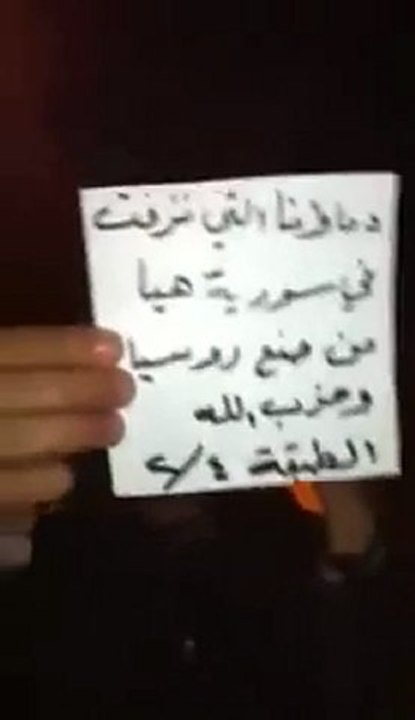 دماؤنا التي نزفت
في سورية هيا
من صنع روسيا
وحزب الله
الطبقة ٢/٤